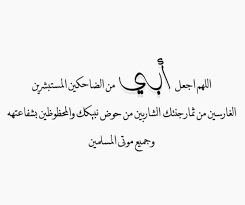 اللهم اجعل أبي من الضاحكين المستبشرين
الغارسين من ثمار جنتك الشاربين من حوض نبيك والمحظوظين بشفاعتهه
وجميع موتى المسلمين